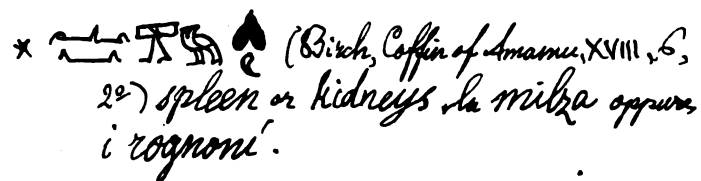 * (Birch, Coffin of Amamu, XVIII, 6,
2º) spleen or kidneys, la milza oppure
i rognoni.